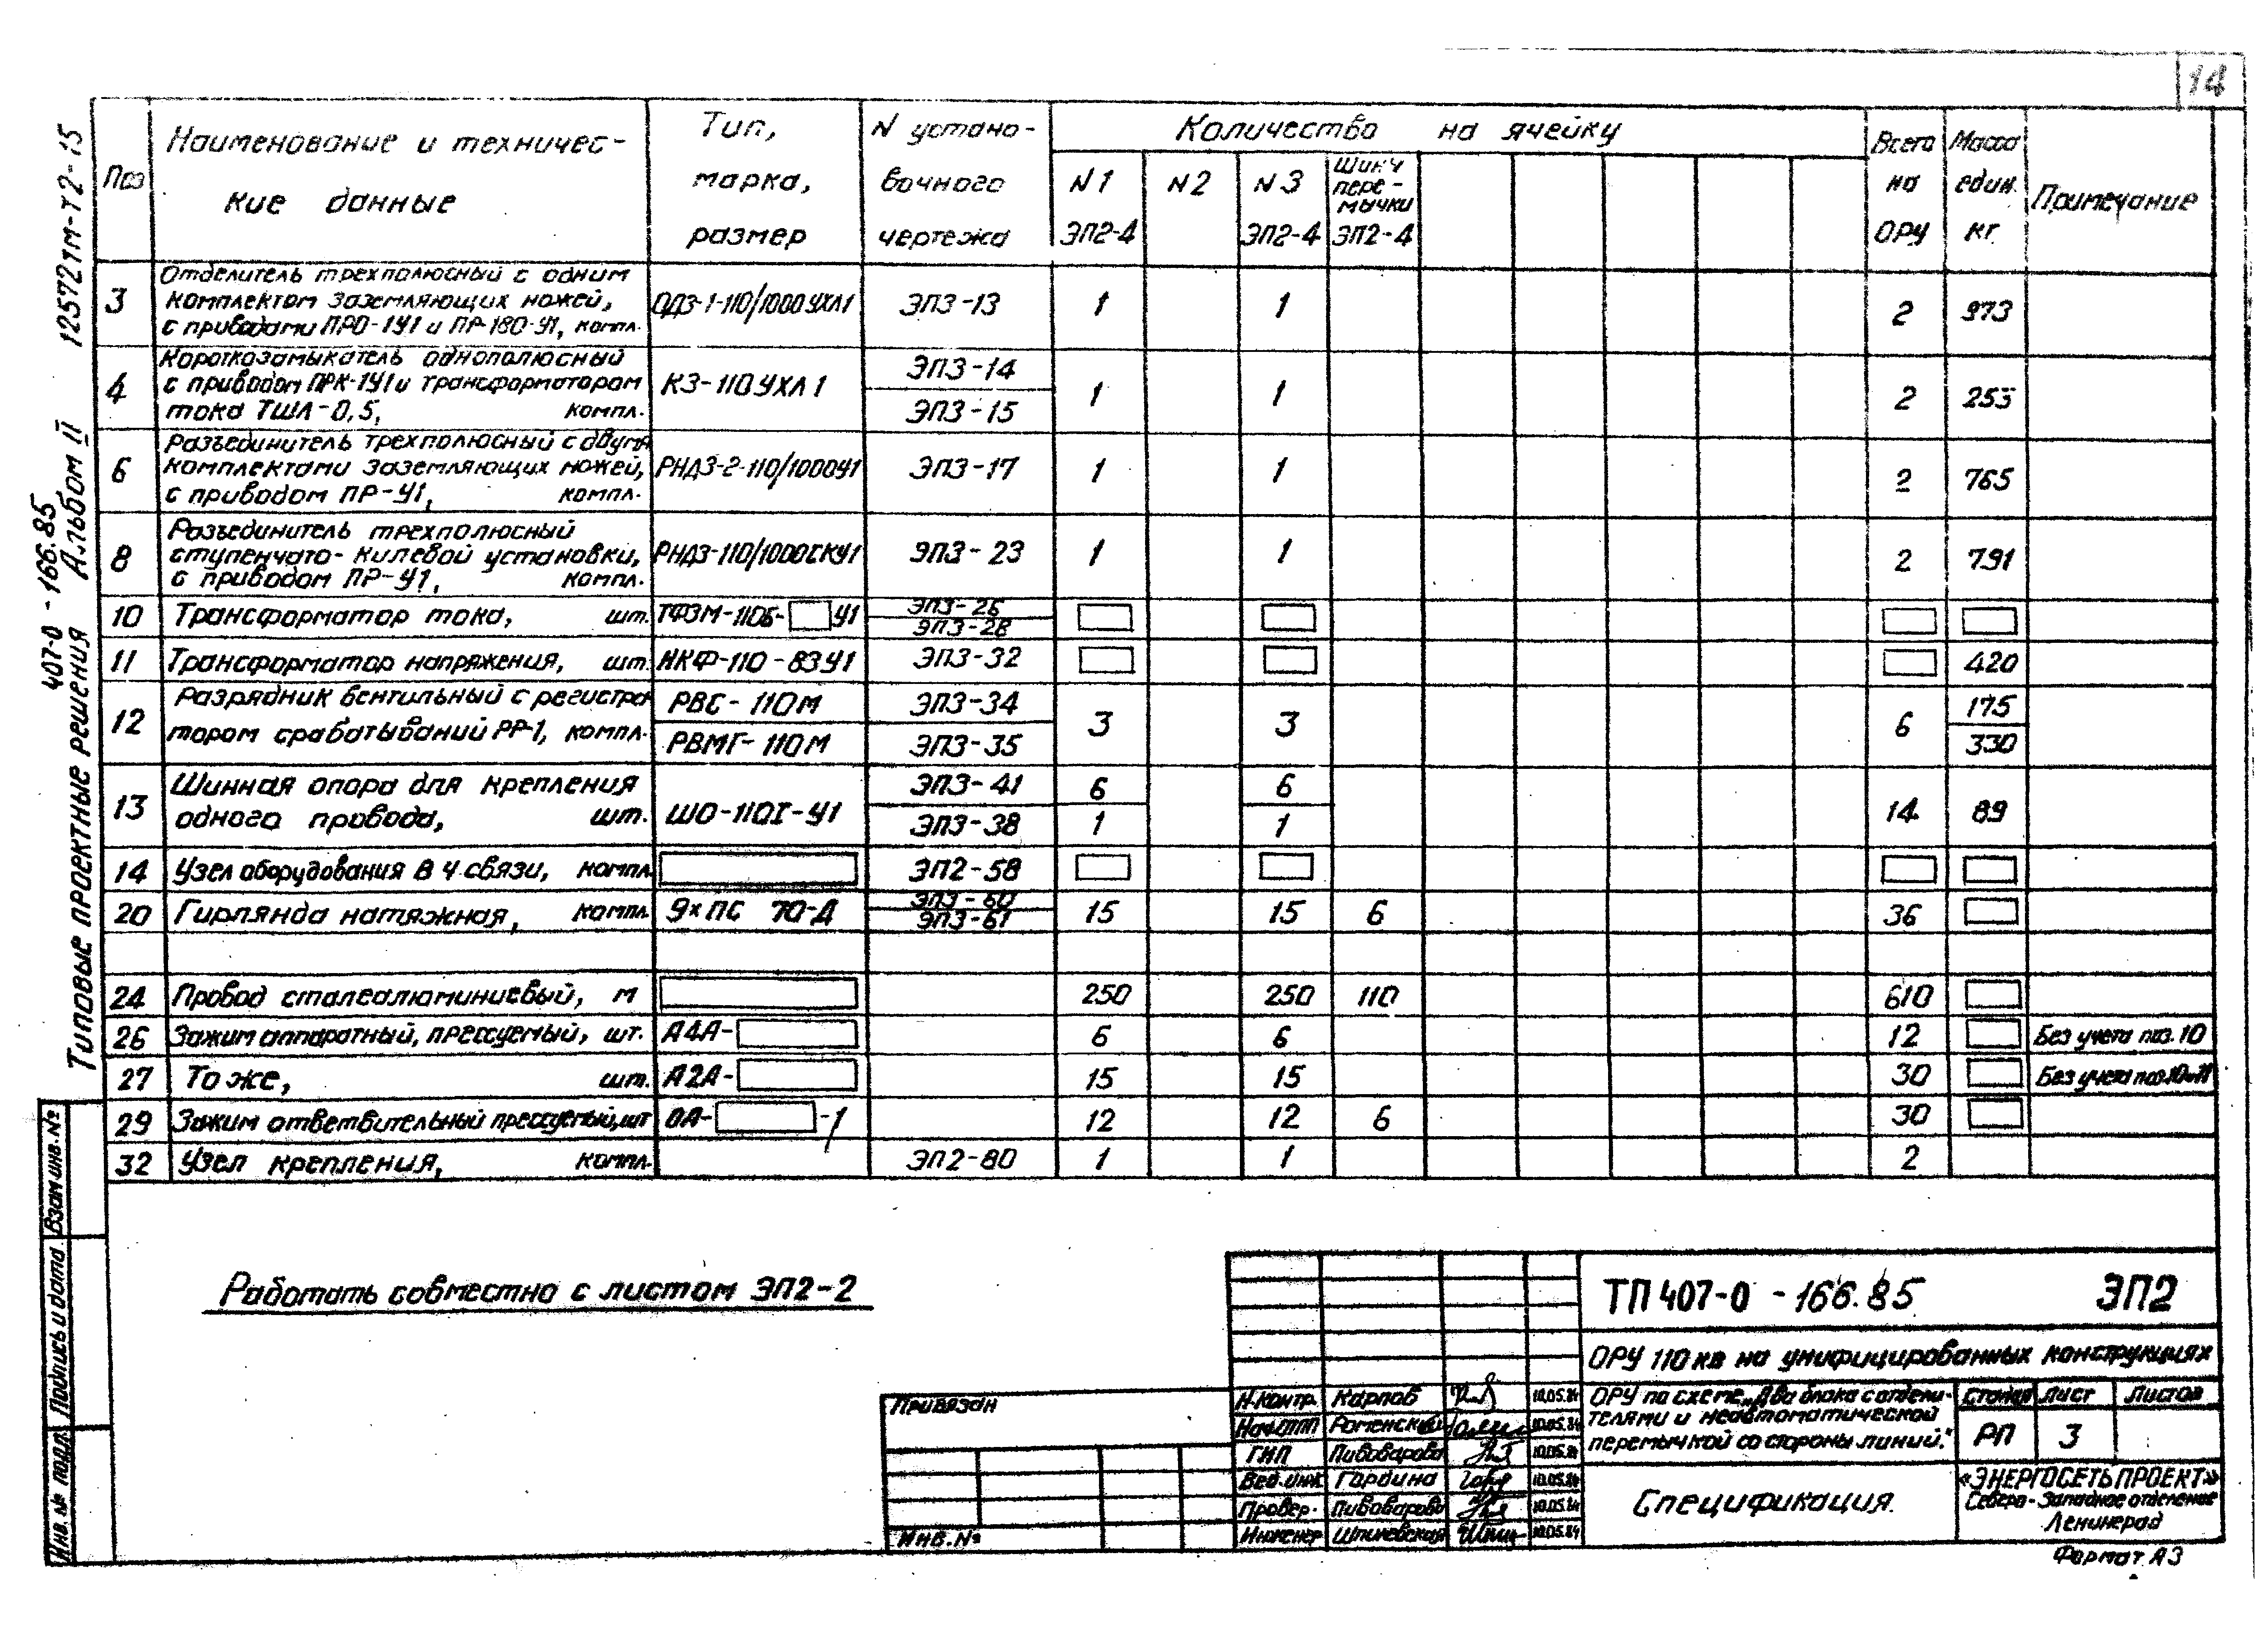 14
12572тм-т2-15
Альбом II
407-0-166.85
Типовые проектные решения
Поз
Наименование и техничес-
кие данные
Тип,
марка,
размер
N устано-
вочного
чертежа
Количество на ячейку
N1
ЭП2-4
N2
N3
ЭП2-4
Шинч
пере-
мычки
ЭП2-4
Всего
на
ОРУ
Масса
един.
кг.
Примечание
3
Отделитель трехполюсный с одним
комплектом заземляющих ножей,
с приводами ПРО-1У1 и ПР-180-У1, компл.
ОДЗ-1-110/1000УХЛ1
ЭПЗ-13
1
1
2
973
4
Короткозамыкатель однополюсный
с приводом ПРК-1У1 и трансформатором
тока ТШЛ-0,5, компл.
КЗ-110УХЛ1
ЭПЗ-14
ЭПЗ-15
1
1
2
253
6
Разъединитель трехполюсный с двумя
комплектами заземляющих ножей,
с приводом ПР-У1, компл.
РНДЗ-2-110/1000У1
ЭПЗ-17
1
1
2
765
8
Разъединитель трехполюсный
ступенчато-килевой установки,
с приводом ПР-У1, компл.
РНДЗ-110/1000СКУ1
ЭПЗ-23
1
1
2
791
10
Трансформатор тока, шт.
ТФЗМ-110Б- У1
ЭПЗ-26
ЭПЗ-28
11
Трансформатор напряжения, шт.
НКФ-110-83У1
ЭПЗ-32
420
12
Разрядник вентильный с регистра
тором срабатываний РР-1, компл.
РВС-110М
РВМГ-110М
ЭПЗ-34
ЭПЗ-35
3
3
6
175
330
13
Шинная опора для крепления
одного провода, шт.
ШО-110I-У1
ЭПЗ-41
ЭПЗ-38
6
1
6
1
14
89
14
Узел оборудования В Ч связи, компл.
ЭП2-58
20
Гирлянда натяжная, компл.
9×ПС 70-Д
ЭПЗ-60
ЭПЗ-61
15
15
6
36
24
Провод сталеалюминиевый, м
250
250
110
610
26
Зажим аппаратный, прессуемый, шт.
А4А-
6
6
12
Без учета поз.10
27
То же, шт.
А2А-
15
15
30
Без учета поз.10и11
29
Зажим ответвительный прессуемый, шт
ОА- -1
12
12
6
30
32
Узел крепления, компл.
ЭП2-80
1
1
2
Работать совместно с листом ЭП2-2
Взам инв. №
Подпись и дата
Инв. № подл.
Привязан
Инв. №
ТП 407-0-166.85 ЭП2
ОРУ 110 кв на унифицированных конструкциях
Н.контр. Карпов 10.05.84
Нач.ОТП Роменский 10.05.84
ГИП Пивоварова 10.05.84
Вед.инж Гардина 10.05.84
Провер. Пивоварова 10.05.84
Инженер Шпилевская 10.05.84
ОРУ по схеме „Два блока с отдели-
телями и неавтоматической
перемычкой со стороны линий."
Стадия Лист Листов
РП 3
Спецификация.
«ЭНЕРГОСЕТЬПРОЕКТ»
Северо-Западное отделение
Ленинград
Формат А3